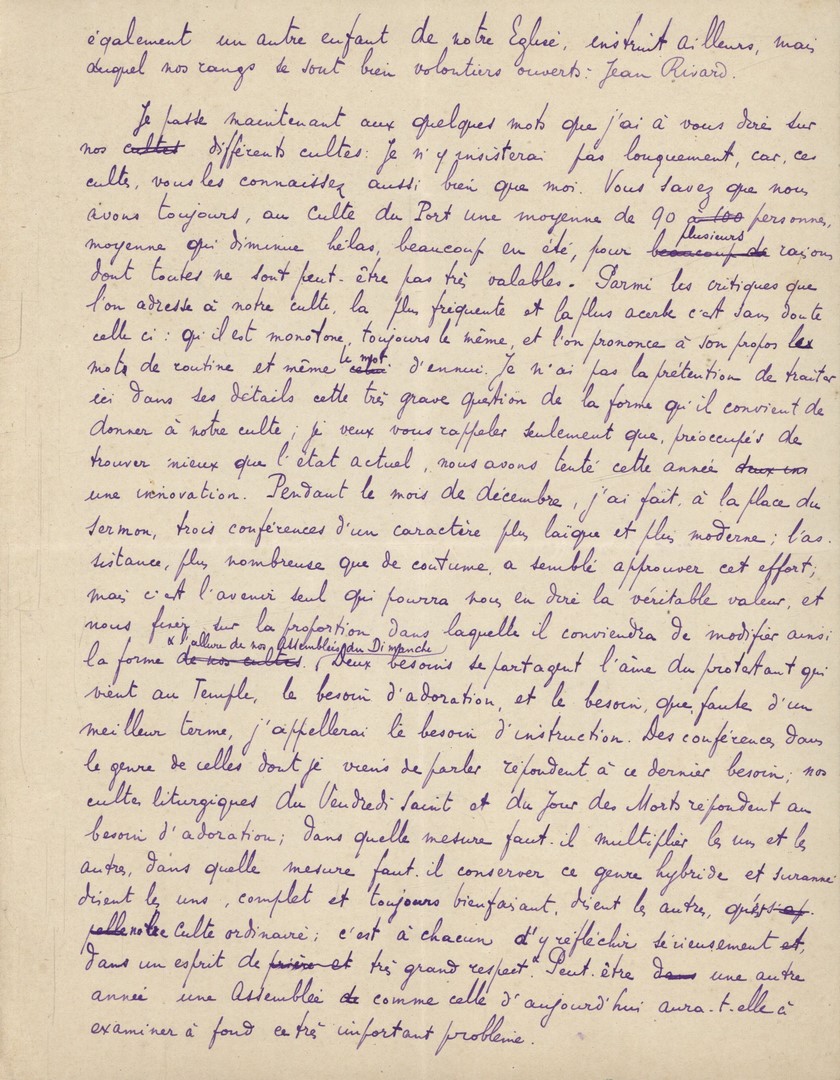 également un autre enfant de notre Eglise, instruit ailleurs, mais
auquel nos rangs se sont bien volontiers ouverts: Jean Rivard.
Je passe maintenant aux quelques mots que j'ai à vous dire sur
nos cultes différents cultes: Je n'y insisterai pas longuement, car, ces
cultes, vous les connaissez aussi bien que moi. Vous savez que nous
avons toujours, au culte du Port une moyenne de 90 à 100 personnes,
plusieurs
moyenne qui diminue hélas, beaucoup en été, pour beaucoup de raisons
dont toutes ne sont peut-être pas très valables. Parmi les critiques que
l'on adresse à notre culte, la plus fréquente et la plus acerbe c'est sans doute
celle ci: qu'il est monotone, toujours le même, et l'on prononce à son propos les
le mot
mots de routine et même celui d'ennui. Je n'ai pas la prétention de traiter
ici dans ses détails cette très grave question de la forme qu'il convient de
donner à notre culte; je veux vous rappeler seulement que, préoccupés de
trouver mieux que l'état actuel, nous avons tenté cette année deux inn
une innovation. Pendant le mois de décembre, j'ai fait, à la place du
sermon, trois conférences d'un caractère plus laïque et plus moderne; l'as-
sistance, plus nombreuse que de coutume, a semblé approuver cet effort;
mais c'est l'avenir seul qui pourra nous en dire la véritable valeur, et
nous fixer sur la proportion dans laquelle il conviendra de modifier ainsi
x l'allure de nos Assemblées du Dimanche
la forme de nos cultes. Deux besoins se partagent l'âme du protestant qui
vient au Temple, le besoin d'adoration, et le besoin, que, faute d'un
meilleur terme, j'appellerai le besoin d'instruction. Des conférences dans
le genre de celles dont je viens de parler répondent à ce dernier besoin; nos
cultes liturgiques du Vendredi Saint et du Jour des Morts répondent au
besoin d'adoration; dans quelle mesure faut-il multiplier les uns et les
autres, dans quelle mesure faut-il conserver ce genre hybride et suranné
disent les uns, complet et toujours bienfaisant, disent les autres, qu'est ap-
pelle notre culte ordinaire; c'est à chacun d'y réfléchir sérieusement et,
dans un esprit de prière et très grand respect. Peut-être dans une autre
année une Assemblée de comme celle d'aujourd'hui aura-t-elle à
examiner à fond ce très important problème.